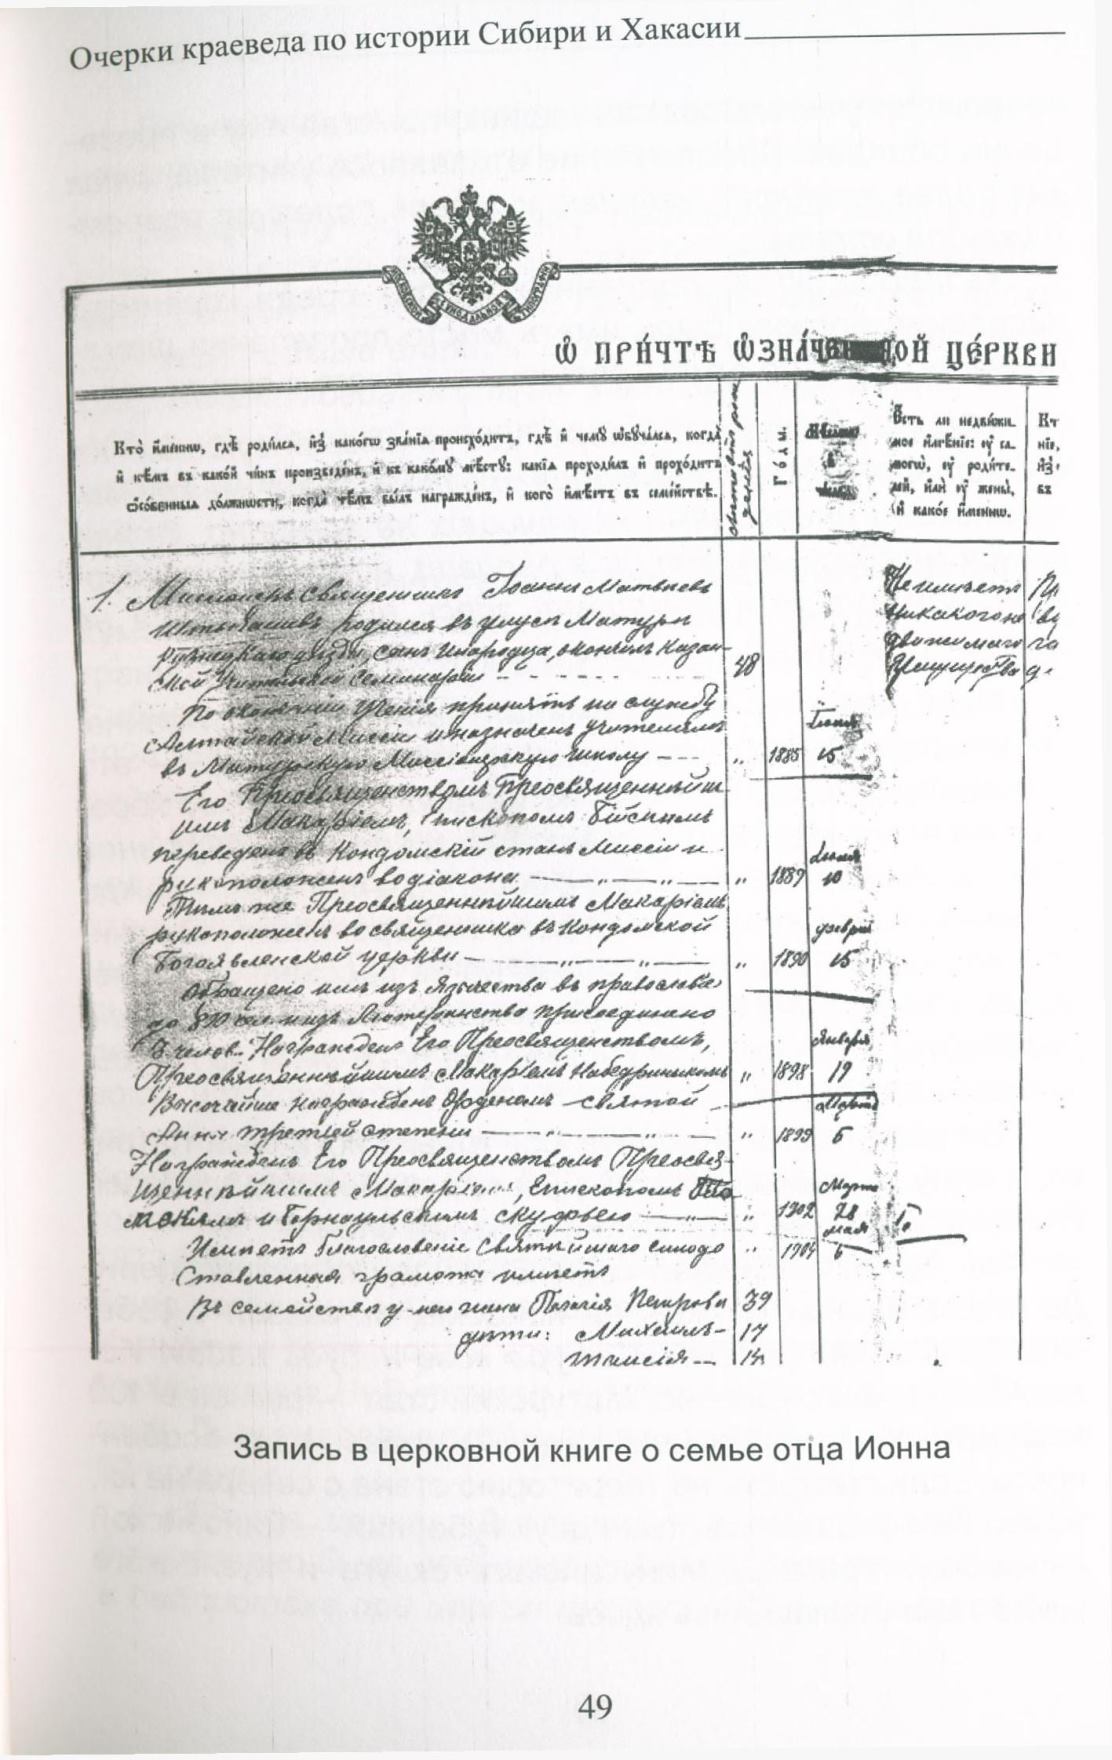 Очерки краеведа по истории Сибири и Хакасии
СИНОДАЛЬНОЙ
Ѡ ПРИ́ЧТѢ ѠЗНА́ЧЕННОЙ ЦЕ́РКВИ
Кто̀ и҆́менно, гдѣ̀ роди́лсѧ, и҆з̾ како́гѡ зва́нїѧ происхо́дитъ, гдѣ̀ и҆ чемꙋ̀ ѡ҆бꙋча́лсѧ, когда̀
и҆ кѣ́мъ въ како́й чи́нъ произведе́нъ, и҆ къ како́мꙋ мѣ́стꙋ: какі̑ѧ проходи́лъ и҆ прохо́дитъ
ѻ҆со́бенныѧ до́лжности, когда̀ чѣ́мъ бы́лъ награжде́нъ, и҆ кого̀ и҆мѣ́етъ въ семе́йствѣ.
Го́ды.
Мѣсяцъ
и
числа
Е҆́сть ли недви́жи-
мое и҆мѣ́нїе: ᲂу҆ са-
могѡ̀, ᲂу҆ роди́те-
лей, и҆лѝ ᲂу҆ жены̀,
и҆ како́е и҆́менно.
Кт
нїе,
и҆з̾
въ
1. Миссіонеръ Священникъ Іоаннъ Матвѣевъ
Штыгашевъ родился въ улусѣ Матуръ
Кузнецкаго уѣзда, сынъ Инородца, окончилъ Казан-
ской Учительской Семинаріи 48
Не имѣетъ
никакого не
движимаго
имущества
По окончаніи ученія принятъ на службу
Алтайской Миссіи и назначенъ учителемъ
въ Матурскую Миссіонерскую школу — „ 1885 Іюля 15
Его Преосвященствомъ Преосвященнѣйш
имъ Макаріемъ, Епископомъ Бійскимъ
переведенъ въ Кондомскій станъ Миссіи и
рукоположенъ во діакона — „ — „ — „ 1889 10
Тѣмъ же Преосвященнѣйшимъ Макаріемъ
рукоположенъ во священника въ Кондомской
Богоявленской церкви — „ — „ — „ 1890 феврал 15
Обращено имъ изъ язычества въ православіе
до 870 чел. и изъ Лютеранства присоединено
человѣ. Награжденъ Его Преосвященствомъ,
Преосвященнѣйшимъ Макаріемъ Набедренникомъ „ 1898 Января 19
Высочайше награжденъ Орденомъ святой
Анны третьей степени — „ — „ — „ 1899 Марта 5
Награжденъ Его Преосвященствомъ Преосвя-
щеннѣйшимъ Макаріемъ, Епископомъ То
мскимъ и Барнаульскимъ скуфьею — „ — „ 1902 Марта 28
Имѣетъ благословеніе Святѣйшаго синода „ 1904 мая 6
Ставленная грамота имѣетъ
Въ семействѣ у него жена Пелагія Петрова 39
дѣти: Михаилъ — 17
Таисія — 14
Запись в церковной книге о семье отца Ионна
49